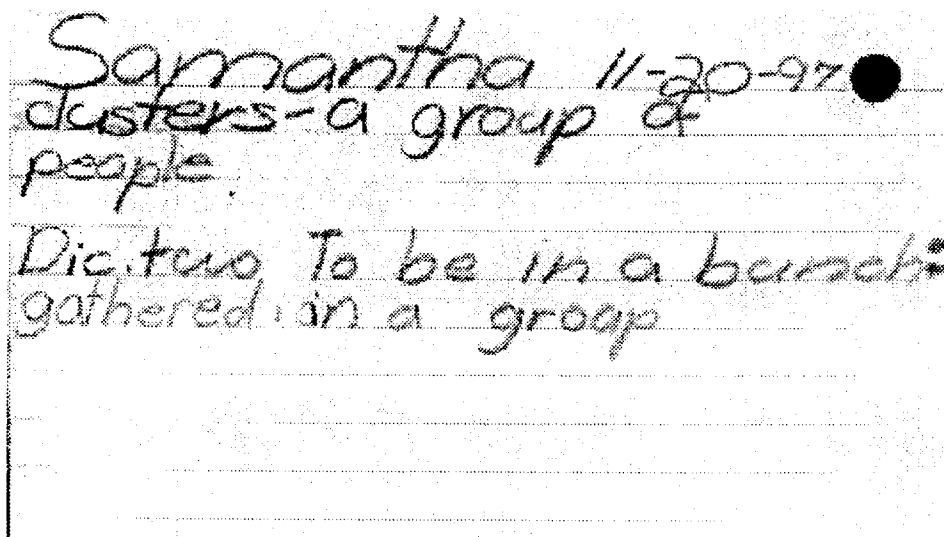 Samantha 11-20-97
clusters-a group of
people.
Dic. two To be in a bunch:
gathered in a group